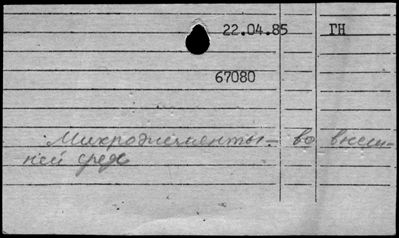 22.04.85 ГН
67080
Микроэлементы - во внеш-
ней среде